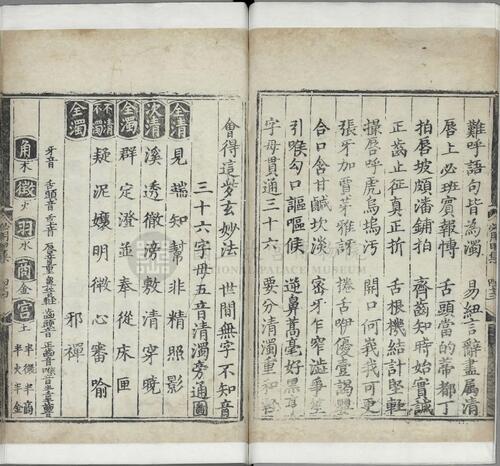 難呼語句皆為濁 易紐言辭盡屬清
唇上必班賓報博 舌頭當的帝都丁
拍唇坡頗潘鋪拍 齊齒知時始實誠
正齒止征真正折 舌根機結計堅輕
撮唇呼虎烏塢汚 開口何我我可更
張牙加 雅訝 捲舌咿優壹謁
合口含甘鹹坎淡
引喉勾口謳嘔候 逆鼻蒿毫好黑
字母貫通三十六 要分清濁重和輕
會得這些玄妙法 世間無字不知音
三十六字母五音清濁旁通圖
全清 見端知幫非精照影
次清 溪透徹滂敷清穿曉
全濁 群定澄並奉從床匣
不清不濁 疑泥孃明微心審喻
全濁 邪禪
牙音 舌頭音 舌上音 齒頭音
角木 徵火 羽水 商金 宮土 半徵半火 半商半金